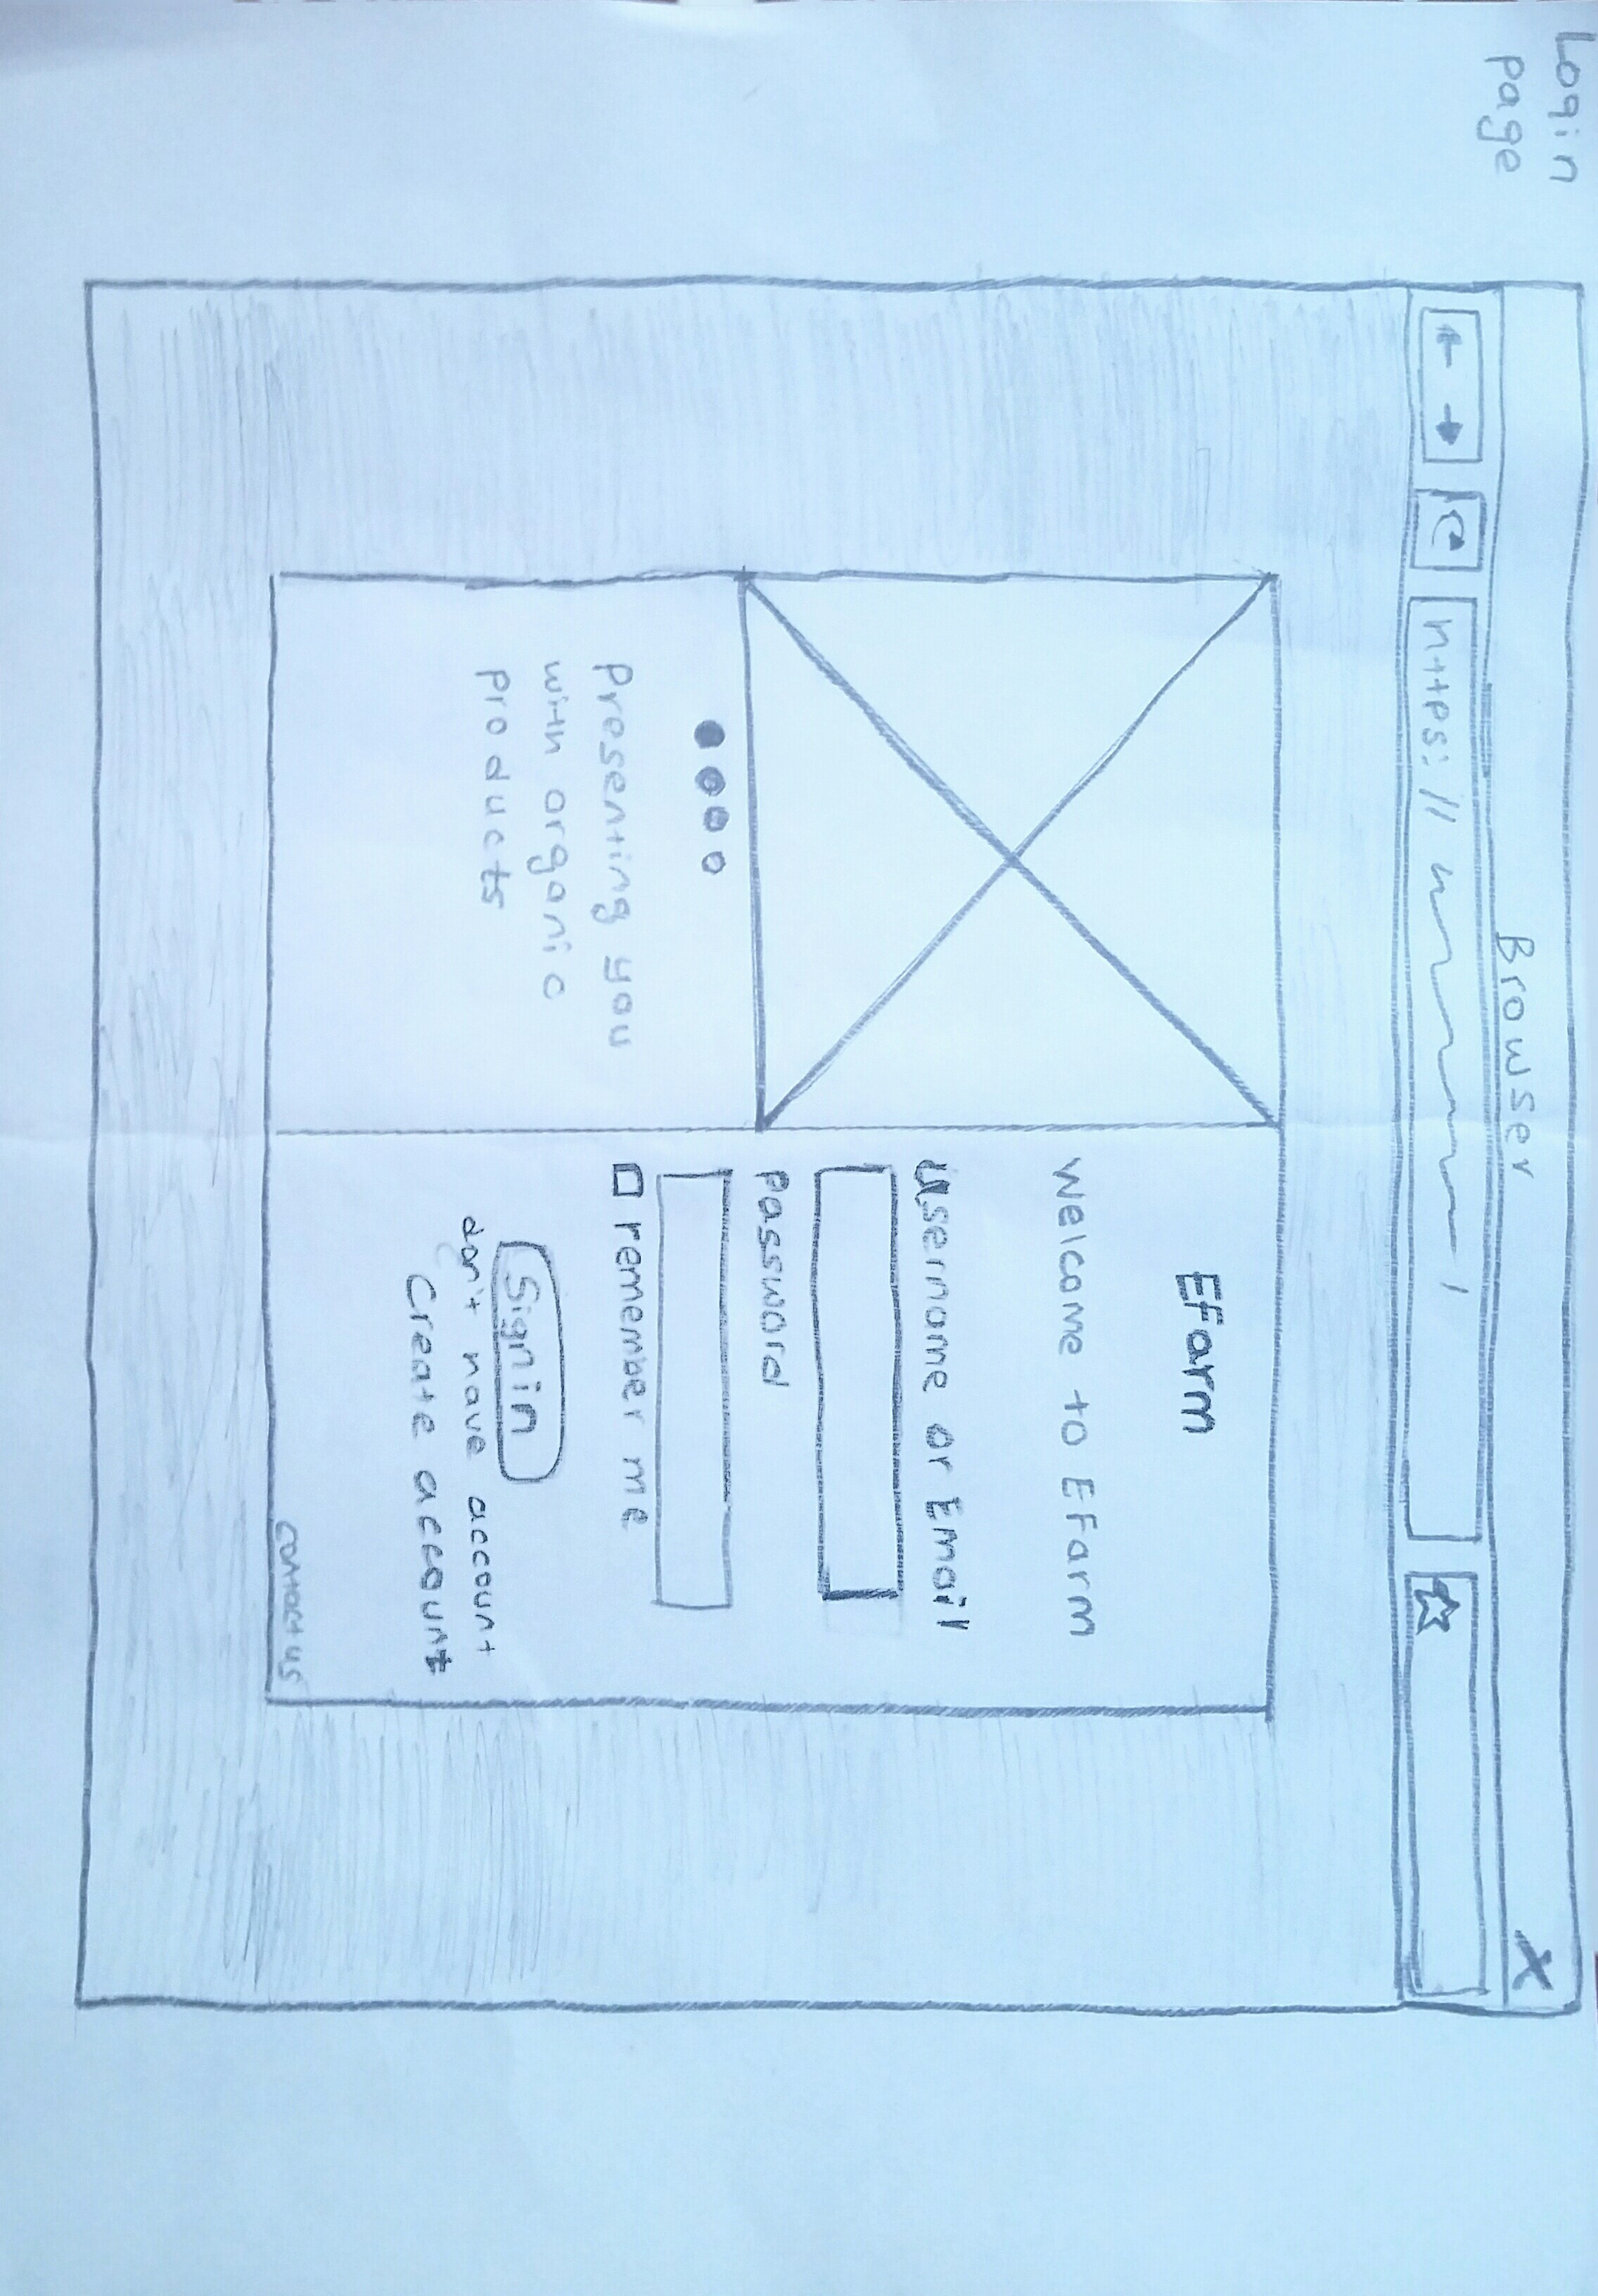 Login
page
Browser X
https://
Presenting you
with organic
products
EFarm
Welcome to EFarm
Username or Email
Password
remember me
Sign in
don't have account
Create account
contact us